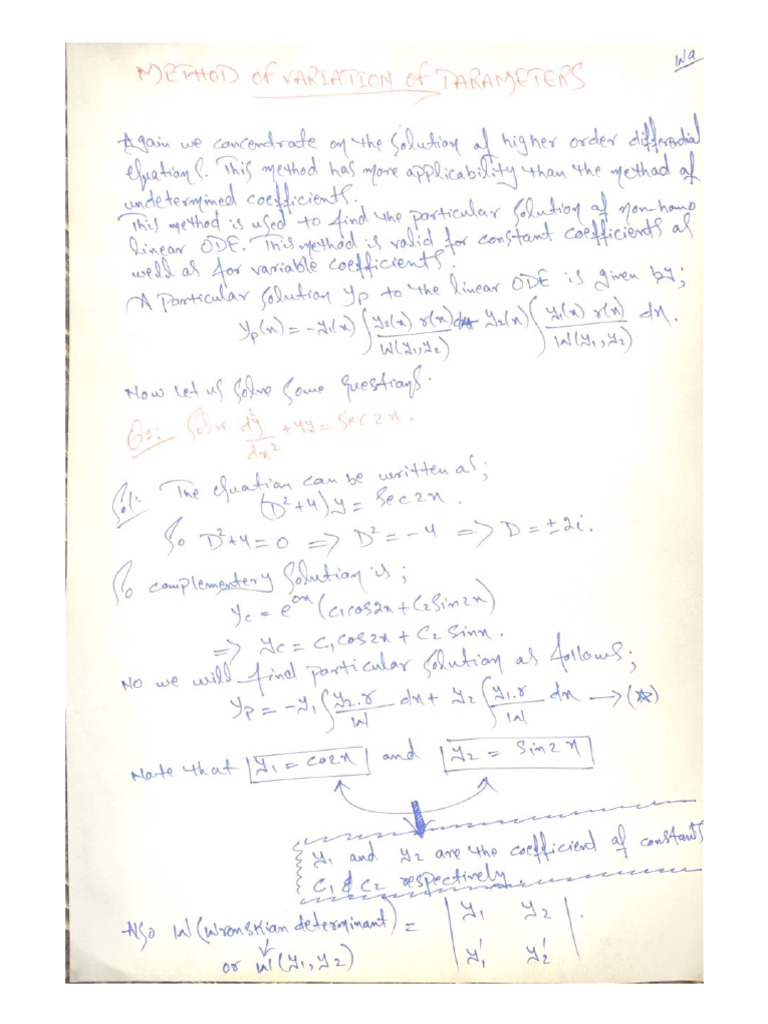 Wa
METHOD OF VARIATION OF PARAMETERS
Again we concendrate on the solution of higher order differential
equations. This method has more applicability than the method of
undetermined coefficients.
This method is used to find the particular solution of non-homo
linear ODE. This method is valid for constant coefficients as
well as for variable coefficients.
A Particular solution yp to the linear ODE is given by;
yp(x) = -y1(x) ∫ y2(x) r(x) / W(y1,y2) dx + y2(x) ∫ y1(x) r(x) / W(y1,y2) dx.
Now let us solve some questions.
Q1: Solve d²y/dx² + 4y = Sec2x.
Sol: The equation can be written as;
(D²+4)y = Sec2x.
So D²+4=0 => D²=-4 => D=±2i.
So complementery solution is;
yc = e^0x (c1cos2x+C2Sin2x)
=> yc = C1cos2x + C2 Sinx.
No we will find particular solution as follows;
yp = -y1 ∫ y2.r / W dx + y2 ∫ y1.r / W dx → (*)
Note that y1 = co2x and y2 = Sin2x
y1 and y2 are the coefficiend of constants
C1 & C2 respectively
Also W (Wronskian determinant) = | y1 y2 |.
or W(y1,y2) | y1' y2' |